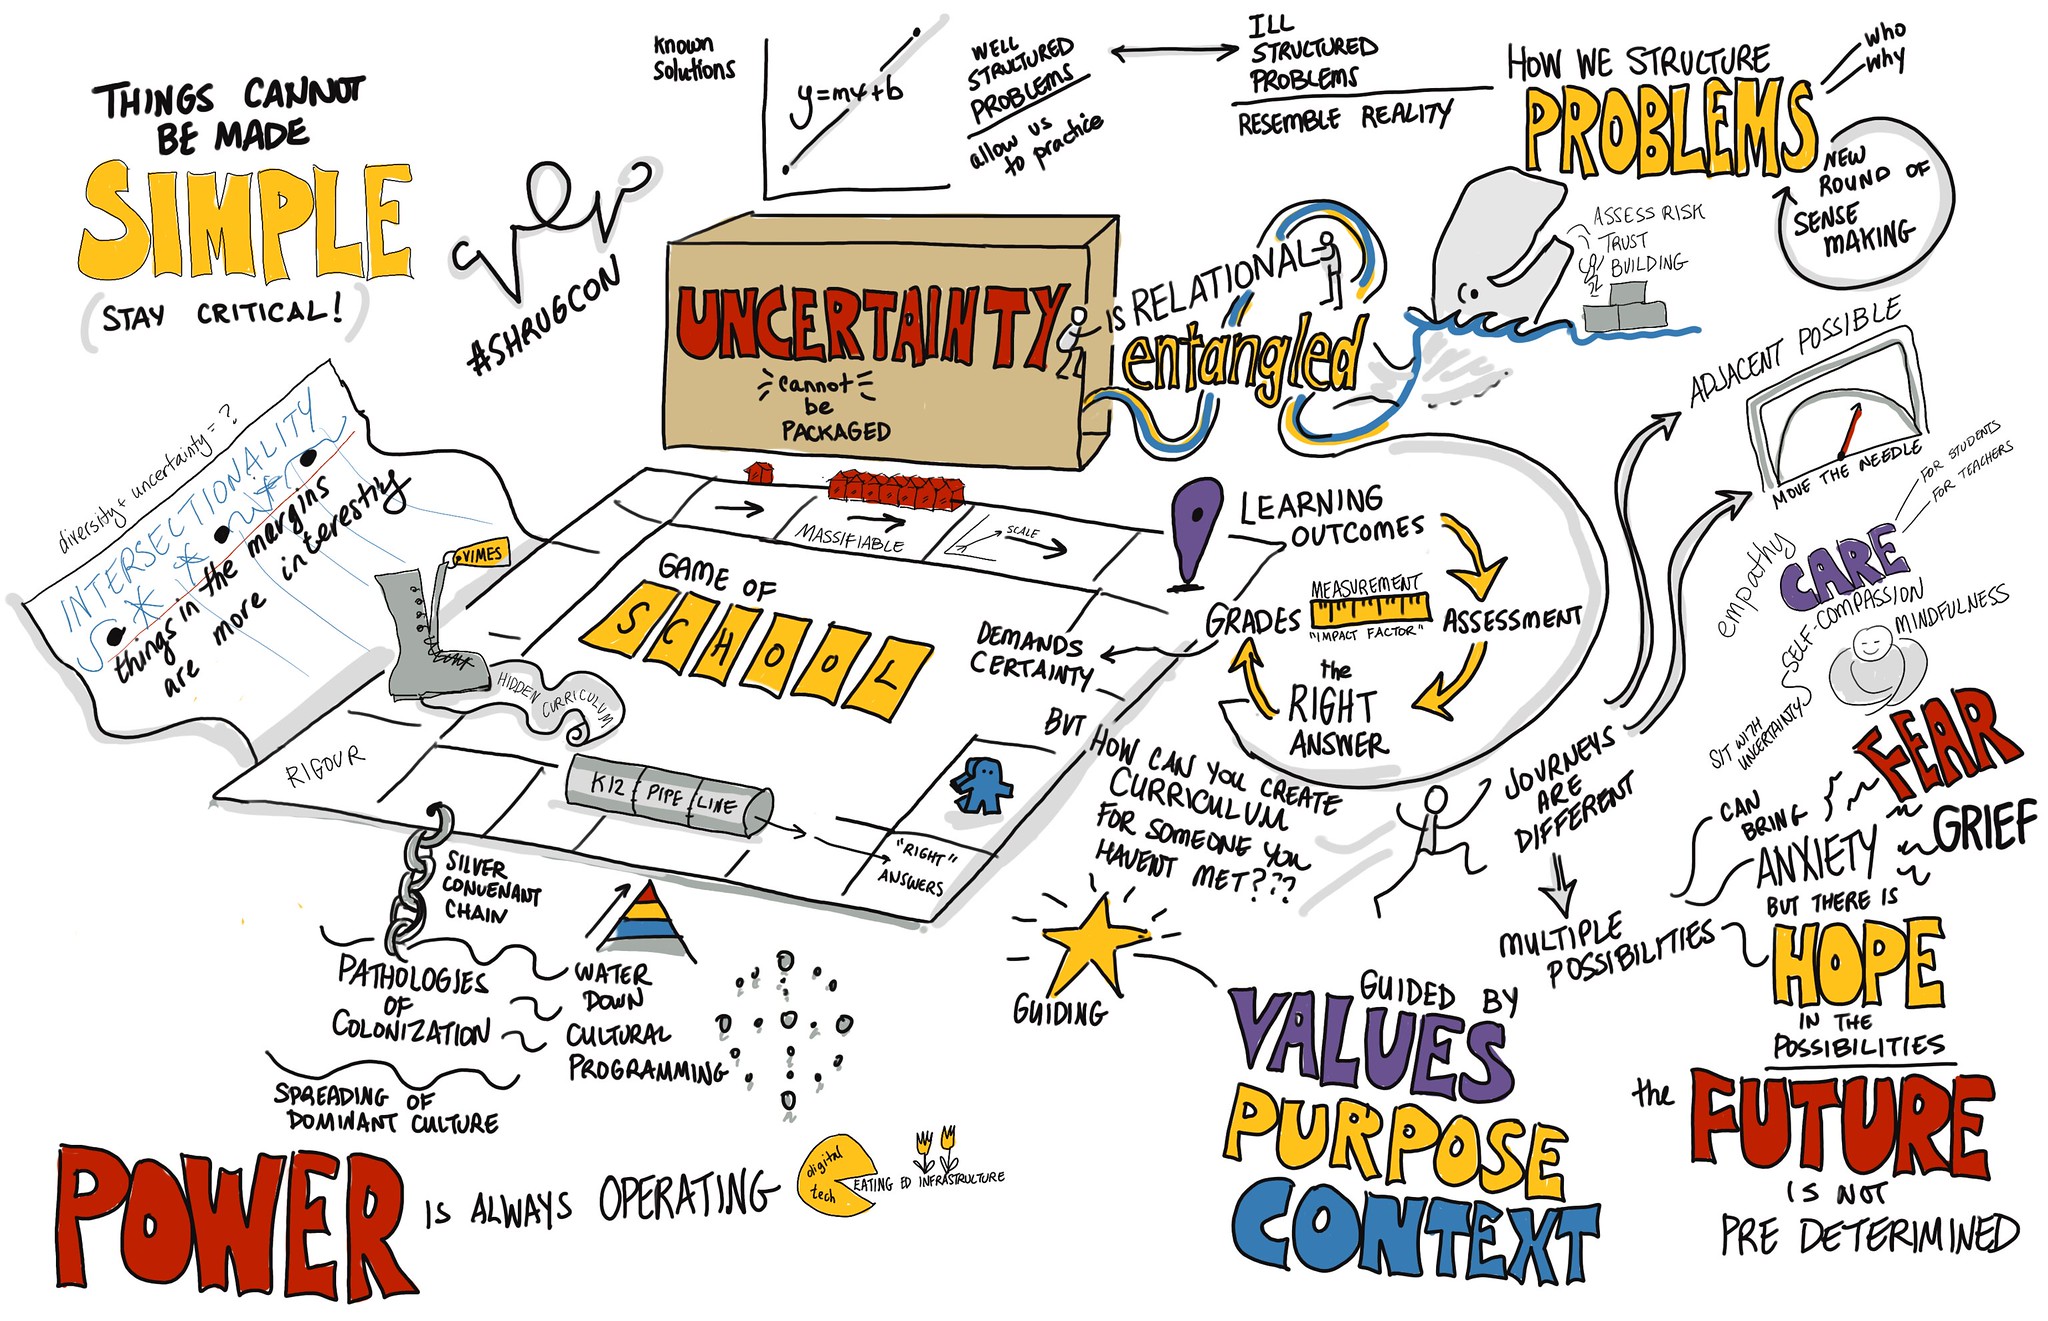 THINGS CANNOT
BE MADE
SIMPLE
(STAY CRITICAL!)
#SHRUGCON
known
solutions
y=mx+b
WELL
STRUCTURED
PROBLEMS
allow us
to practice
ILL
STRUCTURED
PROBLEMS
RESEMBLE REALITY
HOW WE STRUCTURE
PROBLEMS
who
why
NEW
ROUND OF
SENSE
MAKING
ASSESS RISK
TRUST
BUILDING
UNCERTAINTY
cannot
be
PACKAGED
IS RELATIONAL
entangled
diversity + uncertainty = ?
INTERSECTIONALITY
things in the margins
are more interesting
VIMES
HIDDEN
CURRICULUM
MASSIFIABLE
SCALE
GAME OF
SCHOOL
RIGOUR
K12 PIPE LINE
"RIGHT"
ANSWERS
DEMANDS
CERTAINTY
BUT HOW CAN YOU CREATE
CURRICULUM
FOR SOMEONE YOU
HAVENT MET???
LEARNING
OUTCOMES
ASSESSMENT
the
RIGHT
ANSWER
GRADES
MEASUREMENT
"IMPACT FACTOR"
ADJACENT POSSIBLE
MOVE THE NEEDLE
FOR STUDENTS
FOR TEACHERS
empathy
CARE
SELF-COMPASSION
MINDFULNESS
SIT WITH
UNCERTAINTY
JOURNEYS
ARE
DIFFERENT
MULTIPLE
POSSIBILITIES
CAN
BRING
FEAR
ANXIETY
GRIEF
BUT THERE IS
HOPE
IN THE
POSSIBILITIES
the
FUTURE
IS NOT
PRE DETERIMINED
SILVER
CONVENANT
CHAIN
PATHOLOGIES
OF
COLONIZATION
WATER
DOWN
CULTURAL
PROGRAMMING
SPREADING OF
DOMINANT CULTURE
POWER
IS ALWAYS OPERATING
digital
tech
EATING ED INFRASTRUCTURE
GUIDING
GUIDED BY
VALUES
PURPOSE
CONTEXT